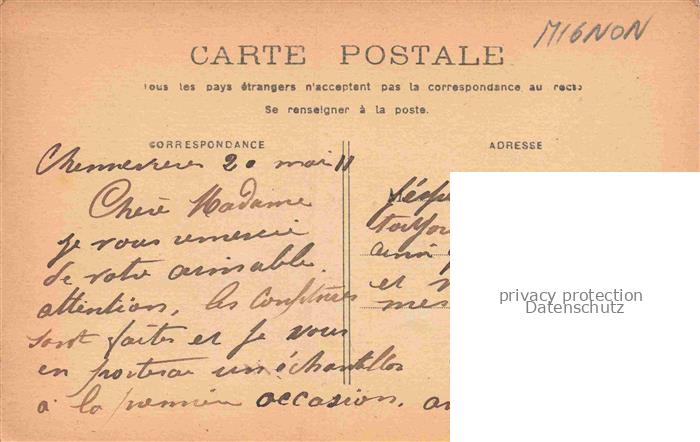 MIGNON
CARTE POSTALE
Tous les pays étrangers n'acceptent pas la correspondance au recto
Se renseigner à la poste.
CORRESPONDANCE
ADRESSE
Chennevieres 20 mai 11
Chère Madame
je vous remercie
de votre aimable
attention, les confitures
sont faites et je vous
en porterai un échantillon
à la première occasion,
et
mes
privacy protection
Datenschutz